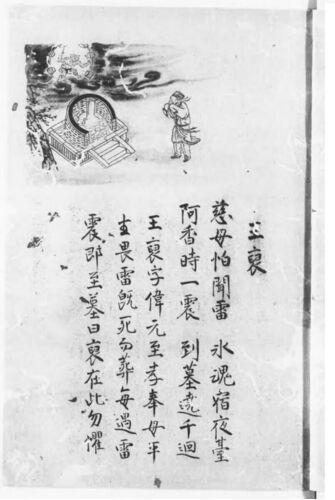 王裒
慈母怕聞雷 氷魂宿夜臺
阿香時一震 到墓遶千迴
王裒字偉元至孝奉母平
生畏雷既死勿葬每遇雷
震即至墓曰裒在此勿懼